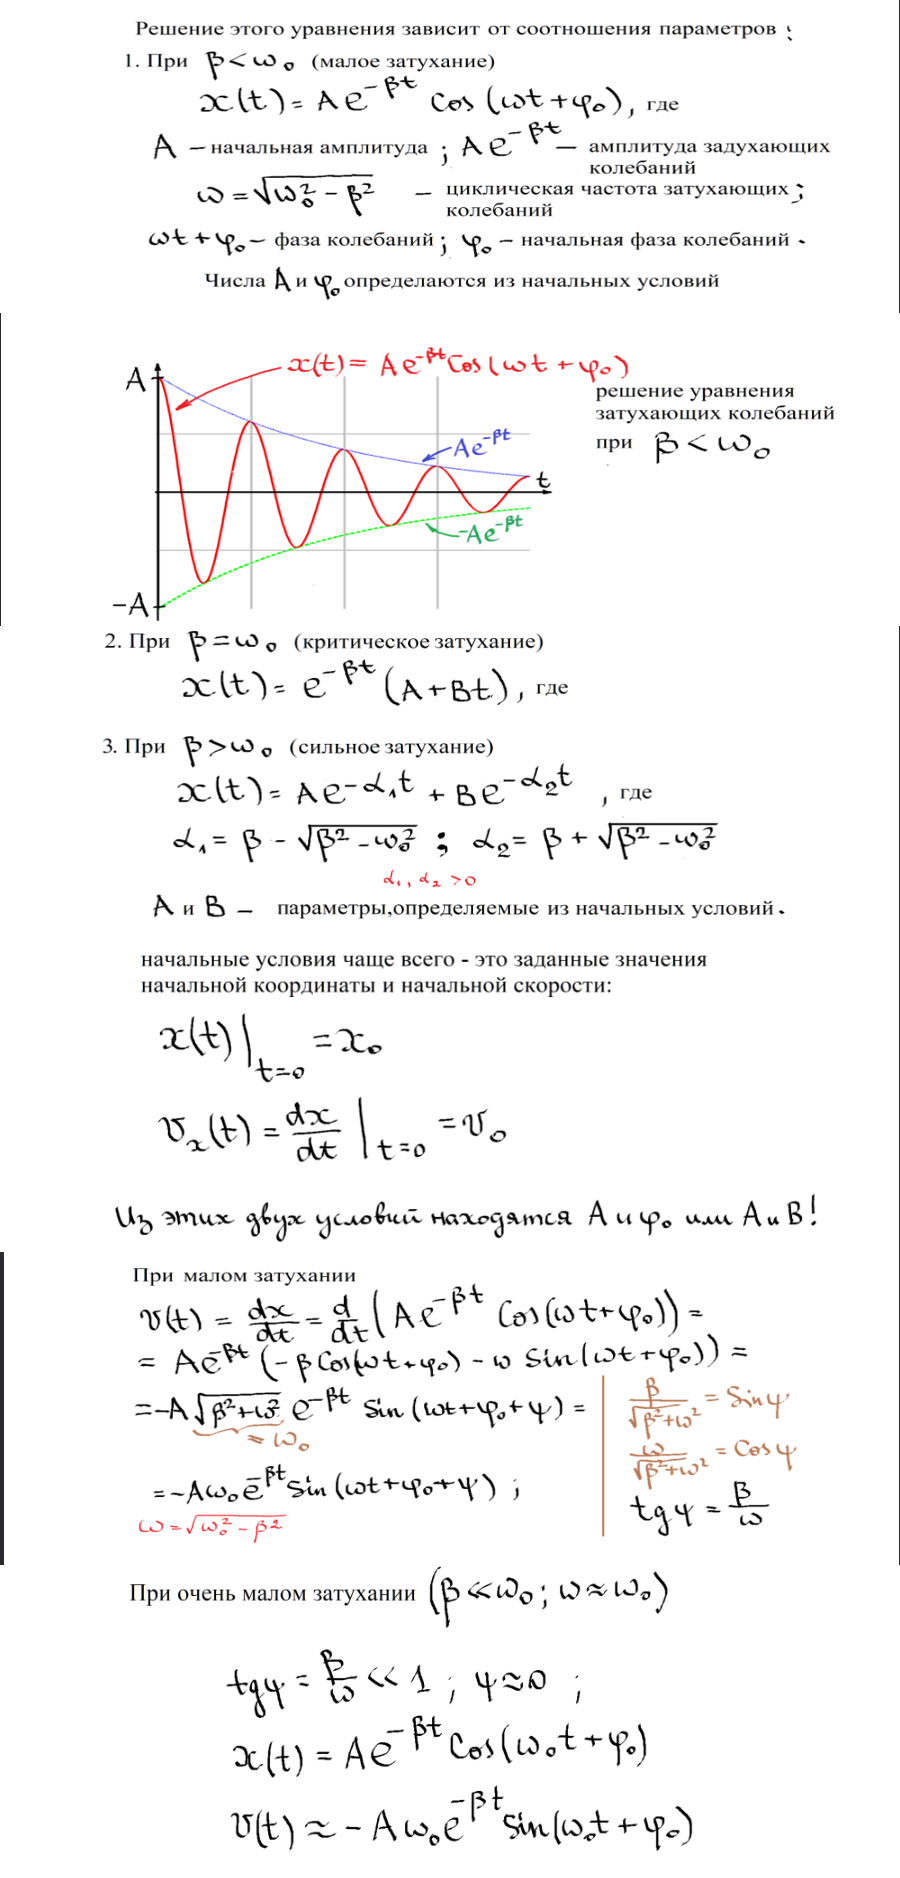 Решение этого уравнения зависит от соотношения параметров :
1. При β<ω₀ (малое затухание)
x(t)=Ae^{-βt} cos(ωt+φ₀), где
A – начальная амплитуда ; Ae^{-βt} – амплитуда задухающих
колебаний
ω=√(ω₀²-β²) – циклическая частота затухающих ;
колебаний
ωt+φ₀ – фаза колебаний ; φ₀ – начальная фаза колебаний .
Числа A и φ₀ определаются из начальных условий
A x(t)= Ae^{-βt}Cos(ωt+φ₀)
решение уравнения
затухающих колебаний
при β<ω₀
Ae^{-βt}
t
-Ae^{-βt}
-A
2. При β=ω₀ (критическое затухание)
x(t)= e^{-βt}(A+Bt), где
3. При β>ω₀ (сильное затухание)
x(t)= Ae^{-α₁t} + Be^{-α₂t} , где
α₁= β - √(β²-ω₀²) ; α₂= β + √(β²-ω₀²)
α₁, α₂ >0
A и B – параметры,определяемые из начальных условий.
начальные условия чаще всего - это заданные значения
начальной координаты и начальной скорости:
x(t)|_{t=0} = x₀
v_x(t)= dx/dt |_{t=0} = v₀
Из этих двух условий находятся A и φ₀ или A и B!
При малом затухании
v(t) = dx/dt = d/dt (Ae^{-βt} Cos(ωt+φ₀)) =
= Ae^{-βt}(-βCos(ωt+φ₀) - ω Sin(ωt+φ₀)) =
=-A√(β²+ω²) e^{-βt} Sin(ωt+φ₀+ψ) =
=ω₀
β/√(β²+ω²) = Sinψ
ω/√(β²+ω²) = Cosψ
tgψ = β/ω
=-Aω₀e^{-βt}Sin(ωt+φ₀+ψ) ;
ω=√(ω₀²-β²)
При очень малом затухании (β≪ω₀; ω≈ω₀)
tgψ = β/ω ≪ 1 ; ψ≈0 ;
x(t) = Ae^{-βt}Cos(ω₀t+φ₀)
v(t) ≈ -Aω₀e^{-βt}Sin(ω₀t+φ₀)